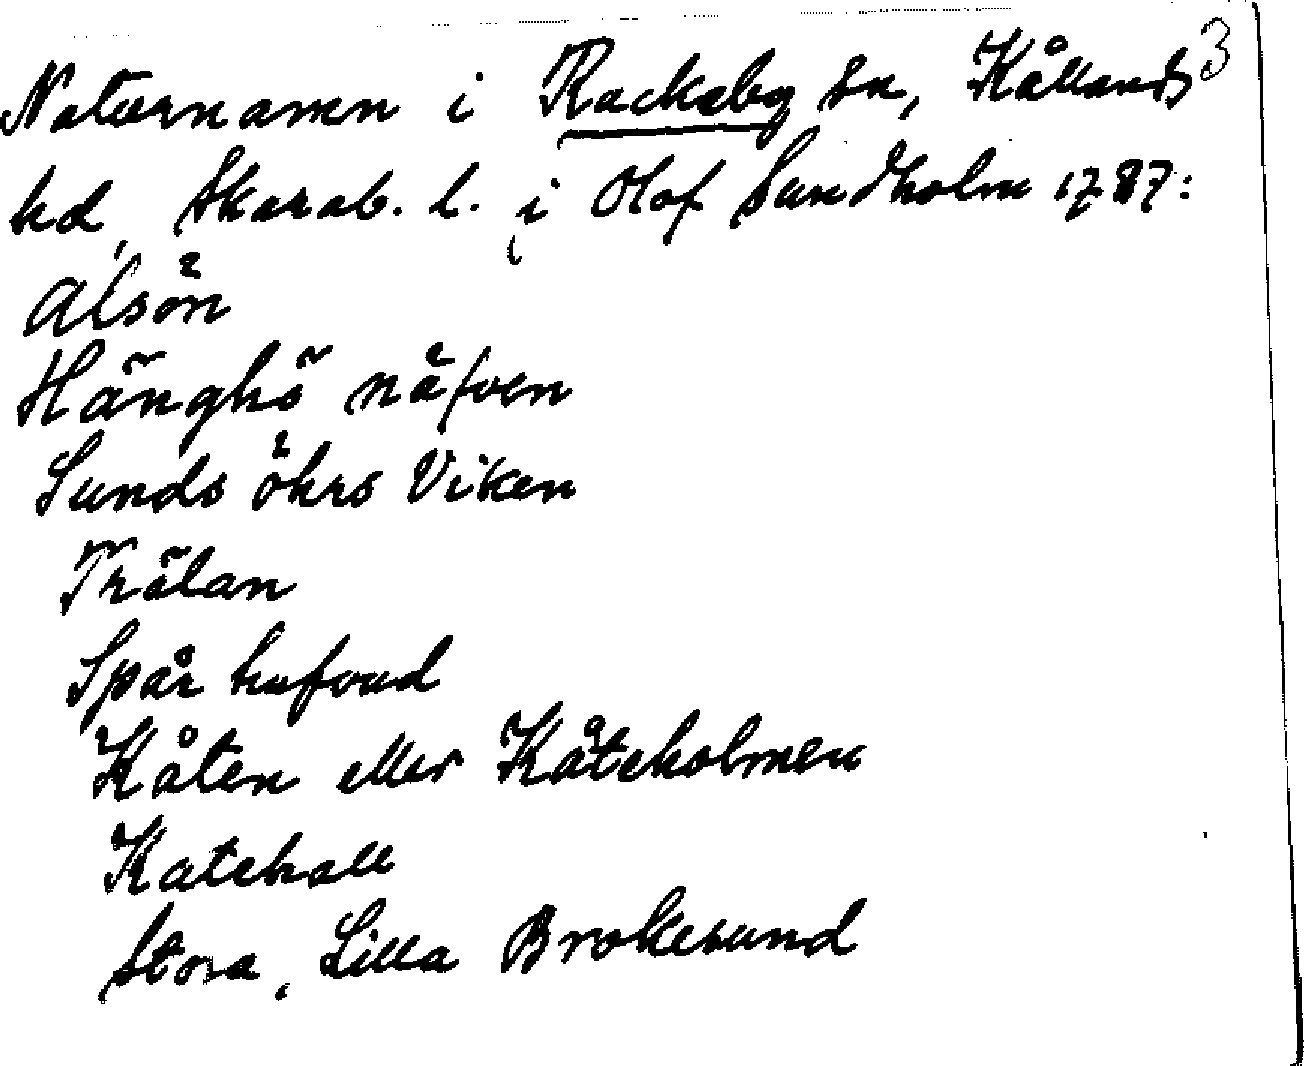 Naturnamn i Rackeby sn, Kållands 3
hd, Skarab. l. i Olof Sundholm 1787:
Alsön
Hänghö näfven
Sunds öhrs Viken
Trälan
Spår hufvud
Kåten eller Kåteholmen
Katehall
Stora, Lilla Brokesund